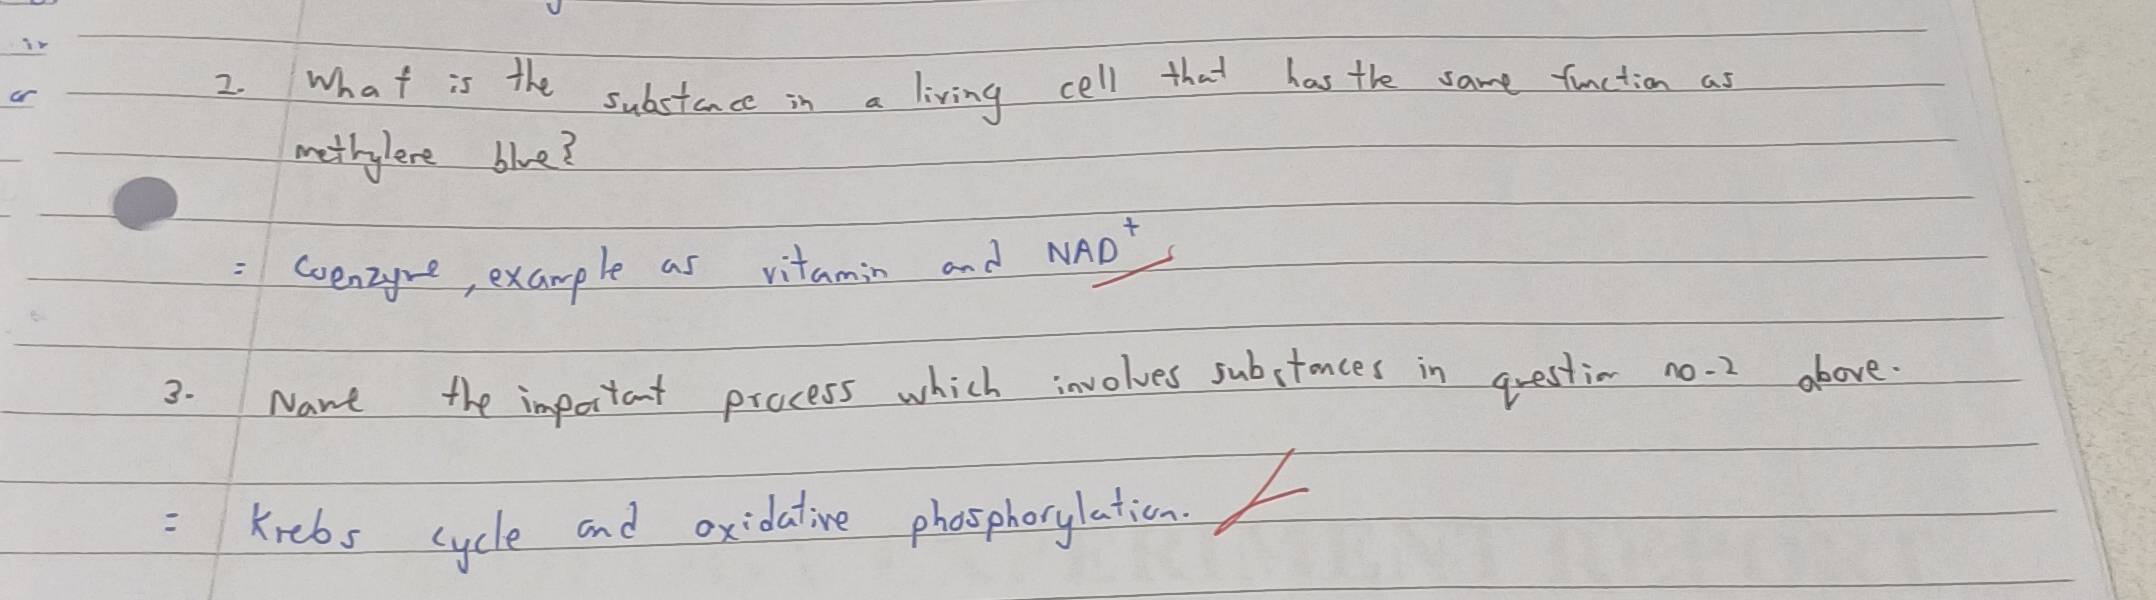 2. What is the substance in a living cell that has the same function as
methylene blue?
= Coenzyme, example as vitamin and NAD+
3. Name the important process which involves substances in question no-2 above.
= Krebs cycle and oxidative phosphorylation.